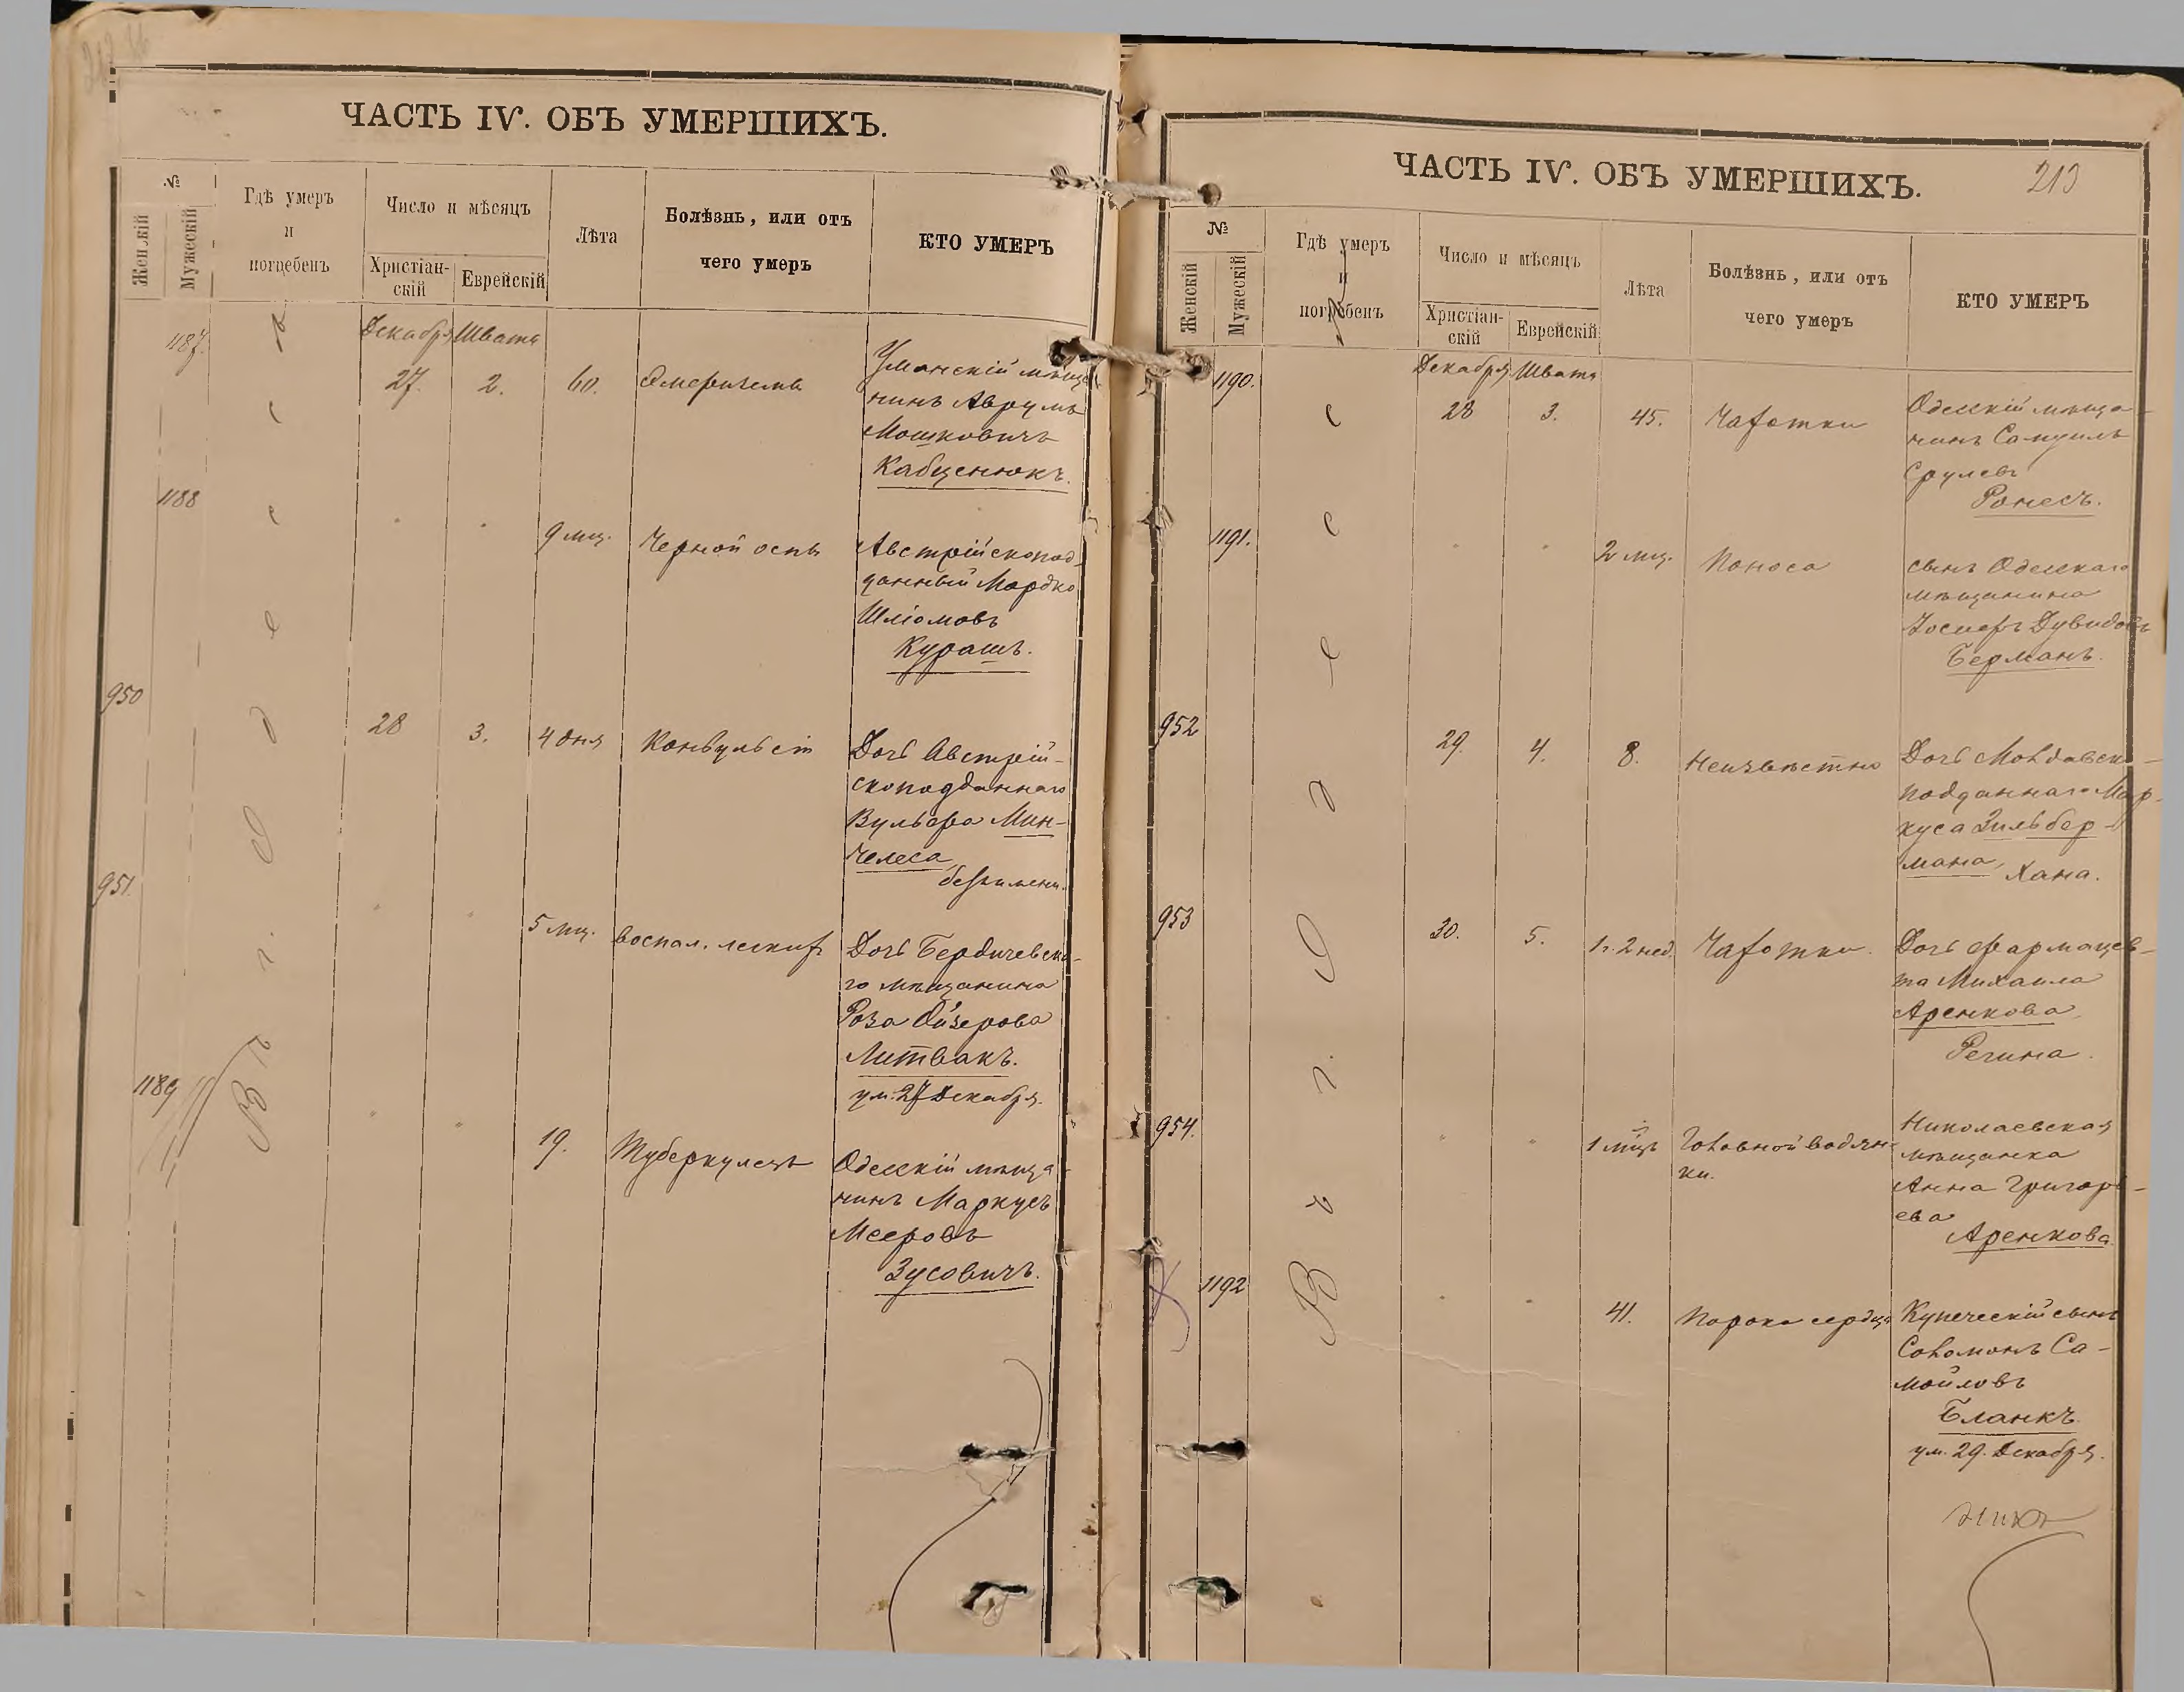 ЧАСТЬ IV. ОБЪ УМЕРШИХЪ.
№
Женскій
Мужескій
Гдѣ умеръ
и
погребенъ
Число и мѣсяцъ
Христіан-
скій
Еврейскій
Лѣта
Болѣзнь, или отъ
чего умеръ
КТО УМЕРЪ
Въ г. Одессѣ
1187.
Декабря Швата
27. 2. 60.
Уманскій мѣща-
нинъ Аврумъ
Мошковичъ
Кабценюкъ.
1188
" " 9 мц. Черной оспы
Австрійскопод-
данный Мордко
Шліомовъ
Курашъ.
950
28 3. 4 дня Конвульсіи
Дочь Австрій-
скоподданнаго
Вульфа Мин-
челеса,
безъимени.
951.
" " 5 мц. воспал. легкихъ
Дочь Бердичевска-
го мѣщанина
Роза Ойзерова
Литвакъ.
ум. 27 Декабря.
1189
" " 19. Туберкулезъ
Одесскій мѣща-
нинъ Маркусъ
Мееровъ
Зусовичъ.
ЧАСТЬ IV. ОБЪ УМЕРШИХЪ.
213
№
Женскій
Мужескій
Гдѣ умеръ
и
погребенъ
Число и мѣсяцъ
Христіан-
скій
Еврейскій
Лѣта
Болѣзнь, или отъ
чего умеръ
КТО УМЕРЪ
Въ г. Одессѣ
1190.
Декабря Швата
28 3. 45. Чахотки
Одесскій мѣща-
нинъ Самуилъ
Срулевъ
Ронесъ.
1191.
" " 2 мц. Поноса
сынъ Одесскаго
мѣщанина
Іосифъ Дувидовъ
Берманъ.
952
29. 4. 8. Неизвѣстно
Дочь Молдавско-
подданнаго Мар-
куса Зильбер-
мана, Хана.
953
30. 5. 1 г. 2 нед. Чахотки.
Дочь фармацев-
та Михаила
Аренкова
Регина.
954.
" " 1 мцъ Головной водян-
ки.
Николаевская
мѣщанка
Анна Григорь-
ева
Аренкова.
1192
" " 41. Порока сердца
Купеческій сынъ
Соломонъ Са-
мойловъ
Бланкъ
ум. 29. Декабря.